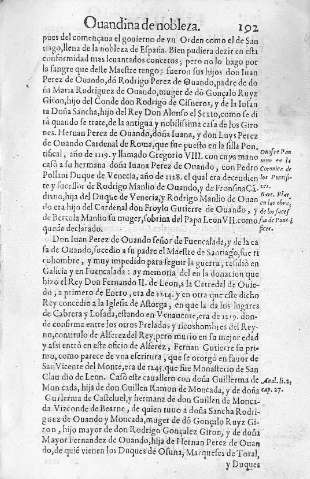 Ouandina de nobleza. 192
pues del començaua el gouierno de vn Orden como el de San
tiago, llena de la nobleza de España. Bien pudiera dezir en esta
conformidad mas leuantados concetos; pero no lo hago por
la sangre que deste Maestre tengo; fueron sus hijos don Iuan
Perez de Ouando, dõ Rodrigo Perez de Ouando, padre de do
ña Maria Rodriguez de Ouando, muger de dõ Gonçalo Ruyz
Giron, hijo del Conde don Rodrigo de Cisneros, y de la Infan
ta Doña Sancha, hijo del Rey Don Alonso el Sexto, como se di
rá quando se trate, de la antigua y nobilissima casa de los Giro
nes. Hernan Perez de Ouando, doña Iuana, y don Luys Perez
de Ouando Cardenal de Roma, que fue puesto en la silla Pon
tifical, año de 1159. y llamado Gregorio VIII. con cuyo mano
casó a su hermana doña Iuana Perez de Ouando, con Pedro
Pollani Duque de Venecia, año de 1128. el qual era decendien
te y sucessor de Rodrigo Manlio de Ouando, y de Fronsina
drina, hija del Duque de Venecia, y Rodrigo Manlio de Ouan
do era hijo del Cardenal don Froylo Gutierre de Ouando, y
de Bertola Manlio su muger, sobrina del Papa Leon VII. como
queda declarado.
Don Iuan Perez de Ouando señor de Fuencalada, y de la ca
sa de Ouando, sucedio a su padre el Maestre de Santiago, fue ri
cohombre, y muy impedido para seguir la guerra, residió en
Galicia y en Fuencalada: ay memoria del en la donacion que
hizo el Rey Don Fernando II. de Leon, a la Catedral de Ouie
do, a primero de Enero, era de 1214. y en otra que este dicho
Rey concedio a la Iglesia de Astorga, en que la da los lugares
de Cabrera y Losada, estando en Venauente, era de 1219. don-
de confirma entre los otros Prelados y ricoshombres del Rey-
no, con titulo de Alferez del Rey, pero murio en su mejor edad
y assi entró en este oficio de Alferez, Fernan Gutierre su pri-
mo, como parece de vna escritura, que se otorgó en fauor de
San Vicente del Monte, era de 1245. que fue Monasterio de San
Claudio de Leon. Casó este cauallero con doña Guillerma de
Moncada, hija de don Guillen Ramon de Moncada, y de doña
Guillerma de Casteluel, y hermana de don Guillen de Monca-
da Vizconde de Bearne, de quien tuuo a doña Sancha Rodri-
guez de Ouando y Moncada, muger de dõ Gonçalo Ruyz Gi-
ron, hijo mayor de don Rodrigo Gonçalez Giron, y de doña
Mayor Fernandez de Ouando, hija de Hernan Perez de Ouan
do, de quiẽ vienen los Duques de Osuna, Marqueses de Toral,
y Duques